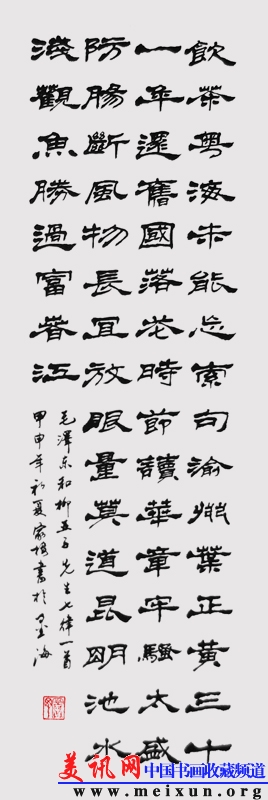 飲茶粵海未能忘索句渝州葉正黃三十
一年還舊國落花時節讀華章牢騷太盛
防腸斷風物長宜放眼量莫道昆明池水
淺觀魚勝過富春江
毛澤東和柳亞子先生七律一首
甲申年初夏家書於墨海
美讯网 中国书画收藏频道
www.meixun.org